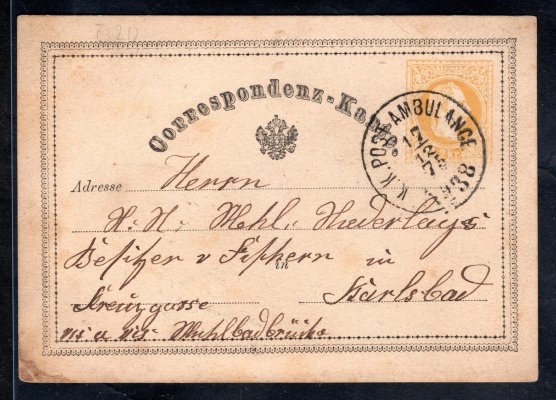 Correspondenz-Karte
K.K. POSTAMBULANCE
38
Adresse Herrn
H. H. Mehl-Niederlags
Besitzer v in
in
Karlsbad
Kreuzgasse
vis a vis Mühlbadbrücke